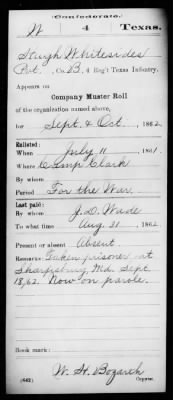 Confederate.
W 4 Texas.
Hough Whitesides
Pvt., Co. B, 4 Reg't Texas Infantry.
Appears on
Company Muster Roll
of the organization named above,
for Sept. & Oct., 1862.
Enlisted:
When July 11, 1861.
Where Camp Clark
By whom
Period For the War.
Last paid:
By whom J. D. Wade
To what time Aug. 31, 1862.
Present or absent Absent
Remarks: Taken prisoner at
Sharpsburg, Md. Sept.
18, 62. Now on parole.
Book mark:
W. H. Bozarth
(642) Copyist.